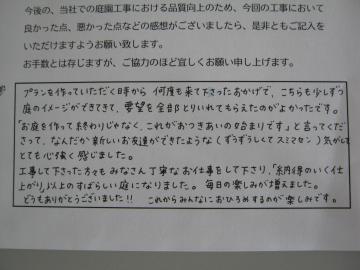 今後の、当社での庭園工事における品質向上のため、今回の工事において
良かった点、悪かった点などの感想がございましたら、是非ともご記入を
いただけますようお願い致します。
お手数とは存じますが、ご協力のほど宜しくお願い申し上げます。
プランを作っていただく時から何度も来て下さったおかげで、こちらも少しずつ
庭のイメージができてきて、要望を全部とりいれてもらえたのがよかったです。
「お庭を作って終わりじゃなく、これがおつきあいの始まりです」と言ってくだ
さって、なんだか新しいお友達ができたような(ずうずうしくてスミマセン)気がして
とても心強く感じました。
工事して下さった方々もみなさん丁寧なお仕事をして下さり、「納得のいく仕
上がり」以上のすばらしい庭になりました。毎日の楽しみが増えました。
どうもありがとうございました!!これからみんなにおひろめするのが楽しみです。